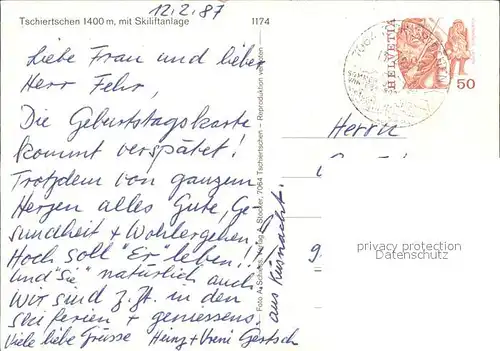 12.2.87
Tschiertschen 1400 m, mit Skiliftanlage 1174
Liebe Frau und lieber
Herr Fehr,
Die Geburtstagskarte
kommt verspätet!
Trotzdem von ganzem
Herzen alles Gute, Ge-
sundheit + Wohlergehen.
Hoch soll "Er" leben!!
und "Sie" natürlich auch.
Wir sind z. Zt. in den
Skiferien + geniessens.
Viele liebe Grüsse Heinz + Vreni Gertsch
aus Küsnacht.
Stocker, 7064 Tschiertschen – Reproduktion verboten
HELVETIA
50
Herrn
9
privacy protection
Datenschutz